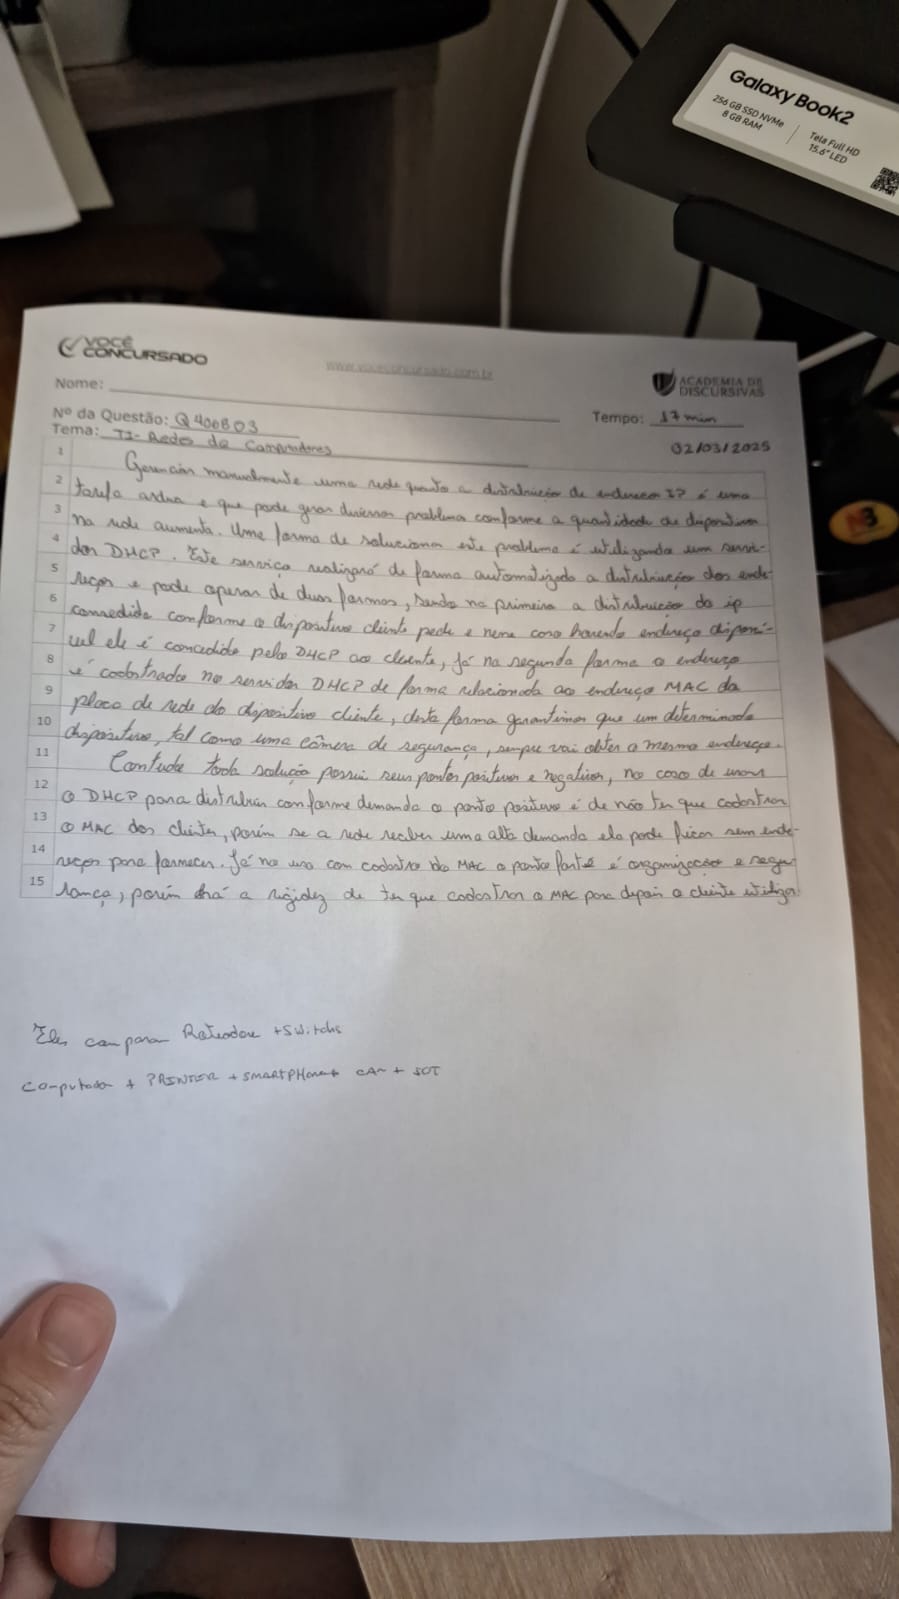 Galaxy Book2
256 GB SSD NVMe
8 GB RAM
Tela Full HD
15.6" LED
VOCÊ
CONCURSADO
www.voceconcursado.com.br
ACADEMIA DE
DISCURSIVAS
Nome:
Nº da Questão: Q400803
Tempo: 17 min
Tema: TI-Redes de Computadores
02/03/2025
1 Gerenciar manualmente uma rede quanto a distribuição de endereco IP é uma
2 tarefa ardua e que pode gerar diversos problema conforme a quantidade de dispositivos
3 na rede aumenta. Uma forma de solucionar este problema é utilizando um servi-
4 dor DHCP. Este serviço realizará de forma automatizada a distribuição dos ende-
5 reços e pode operar de duas formas, sendo na primeira a distribuição do ip
6 concedida conforme o dispositivo cliente pede e neste caso havendo endereço disponí-
7 vel ele é concedido pelo DHCP ao cliente, já na segunda forma o endereço
8 é cadastrado no servidor DHCP de forma relacionada ao endereço MAC da
9 placa de rede do dispositivo cliente, desta forma garantimos que um determinado
10 dispositivo, tal como uma câmera de segurança, sempre vai obter o mesmo endereço.
11 Contudo toda solução possui seus pontos positivos e negativos, no caso de usar
12 o DHCP para distribuir conforme demanda o ponto positivo é de não ter que cadastrar
13 o MAC dos clientes, porém se a rede receber uma alta demanda ela pode ficar sem ende-
14 reços para fornecer. Já no uso com cadastro do MAC o ponto forte é organização e segu-
15 rança, porém há a rigidez de ter que cadastrar o MAC para depois o cliente utilizar
Roteadore + Switchs
Computador + PRINTER + SMARTPHone+ CAM +